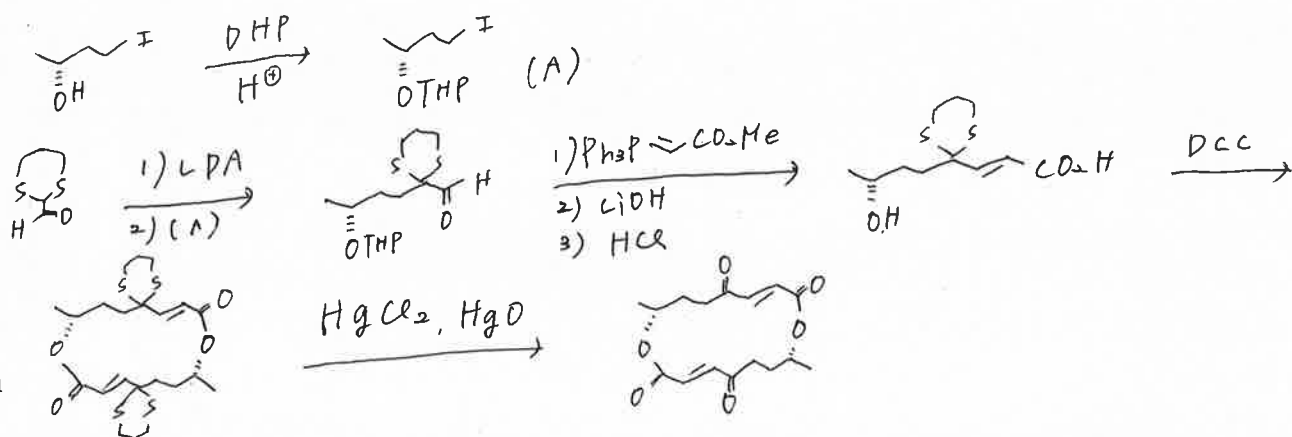 I
OH
DHP
H⊕
I
OTHP
(A)
S S
H O
1) LDA
2) (A)
S S
H
O
OTHP
1) Ph3P CO2Me
2) LiOH
3) HCl
S S
CO2H
OH
DCC
S S
O
O
O
O
S S
HgCl2, HgO
O
O
O
O
O
O